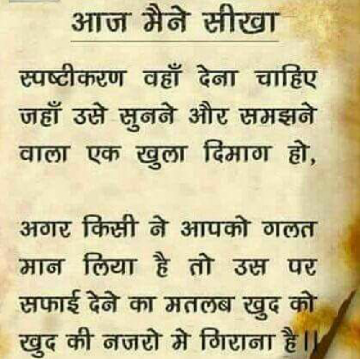 आज मैने सीखा
स्पष्टीकरण वहाँ देना चाहिए
जहाँ उसे सुनने और समझने
वाला एक खुला दिमाग हो,
अगर किसी ने आपको गलत
मान लिया है तो उस पर
सफाई देने का मतलब खुद को
खुद की नजरो मे गिराना है।।